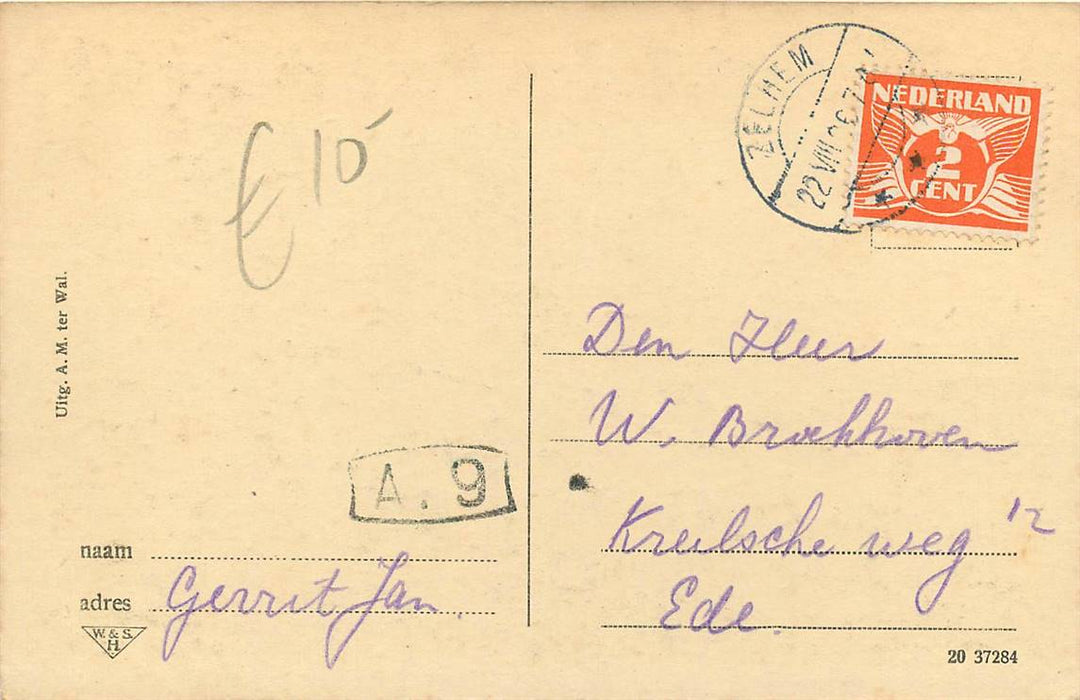 € 10
Uitg. A. M. ter Wal.
A. 9
naam
adres Gerrit Jan.
W. & S.
H
ZELHEM
22 VIII
NEDERLAND
2
CENT
Den Heer
W. Broekhoven
Kreelsche weg 12
Ede.
20 37284